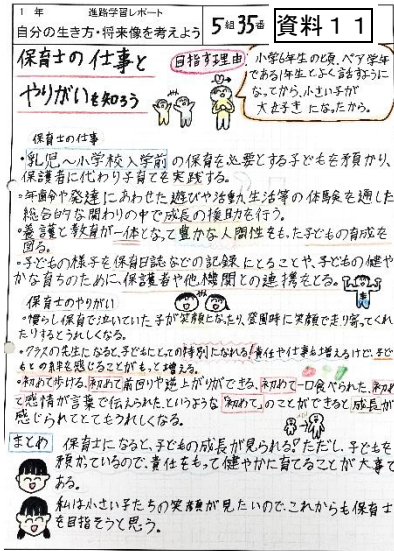 1 年 進路学習レポート
自分の生き方・将来像を考えよう
5組35番
資料１１
保育士の仕事と
やりがいを知ろう
目指す理由
小学6年生の頃、ペア学年
である1年生とよく話すように
なってから、小さい子が
大好きになったから。
保育士の仕事
・乳児～小学校入学前の保育を必要とする子どもを預かり、
保護者に代わり子育てを実践する。
・年齢や発達にあわせた遊びや活動、生活等の体験を通した
総合的な関わりの中で成長の援助を行う。
・養護と教育が一体となって豊かな人間性をもった子どもの育成を
図る。
・子どもの様子を保育日誌などの記録にとることや、子どもの健や
かな育ちのために、保護者や他機関との連携をとる。
保育士のやりがい
・慣らし保育で泣いていた子が笑顔になったり、登園時に笑顔で走り寄ってくれ
たりするとうれしくなる。
・クラスの先生になると、子どもにとっての特別になれる!責任や仕事も増えるけど、子ど
もとの絆を感じることがもっと増える。
・初めて歩ける、初めて前回りや逆上がりができる、初めて一口食べられた、初め
て感情が言葉で伝えられた、というような「初めて」のことができると成長が
感じられてとてもうれしくなる。
まとめ 保育士になると、子どもの成長が見られる。ただし、子どもを
預かっているので、責任をもって健やかに育てることが大事で
ある。
私は小さい子たちの笑顔が見たいので、これからも保育士
を目指そうと思う。